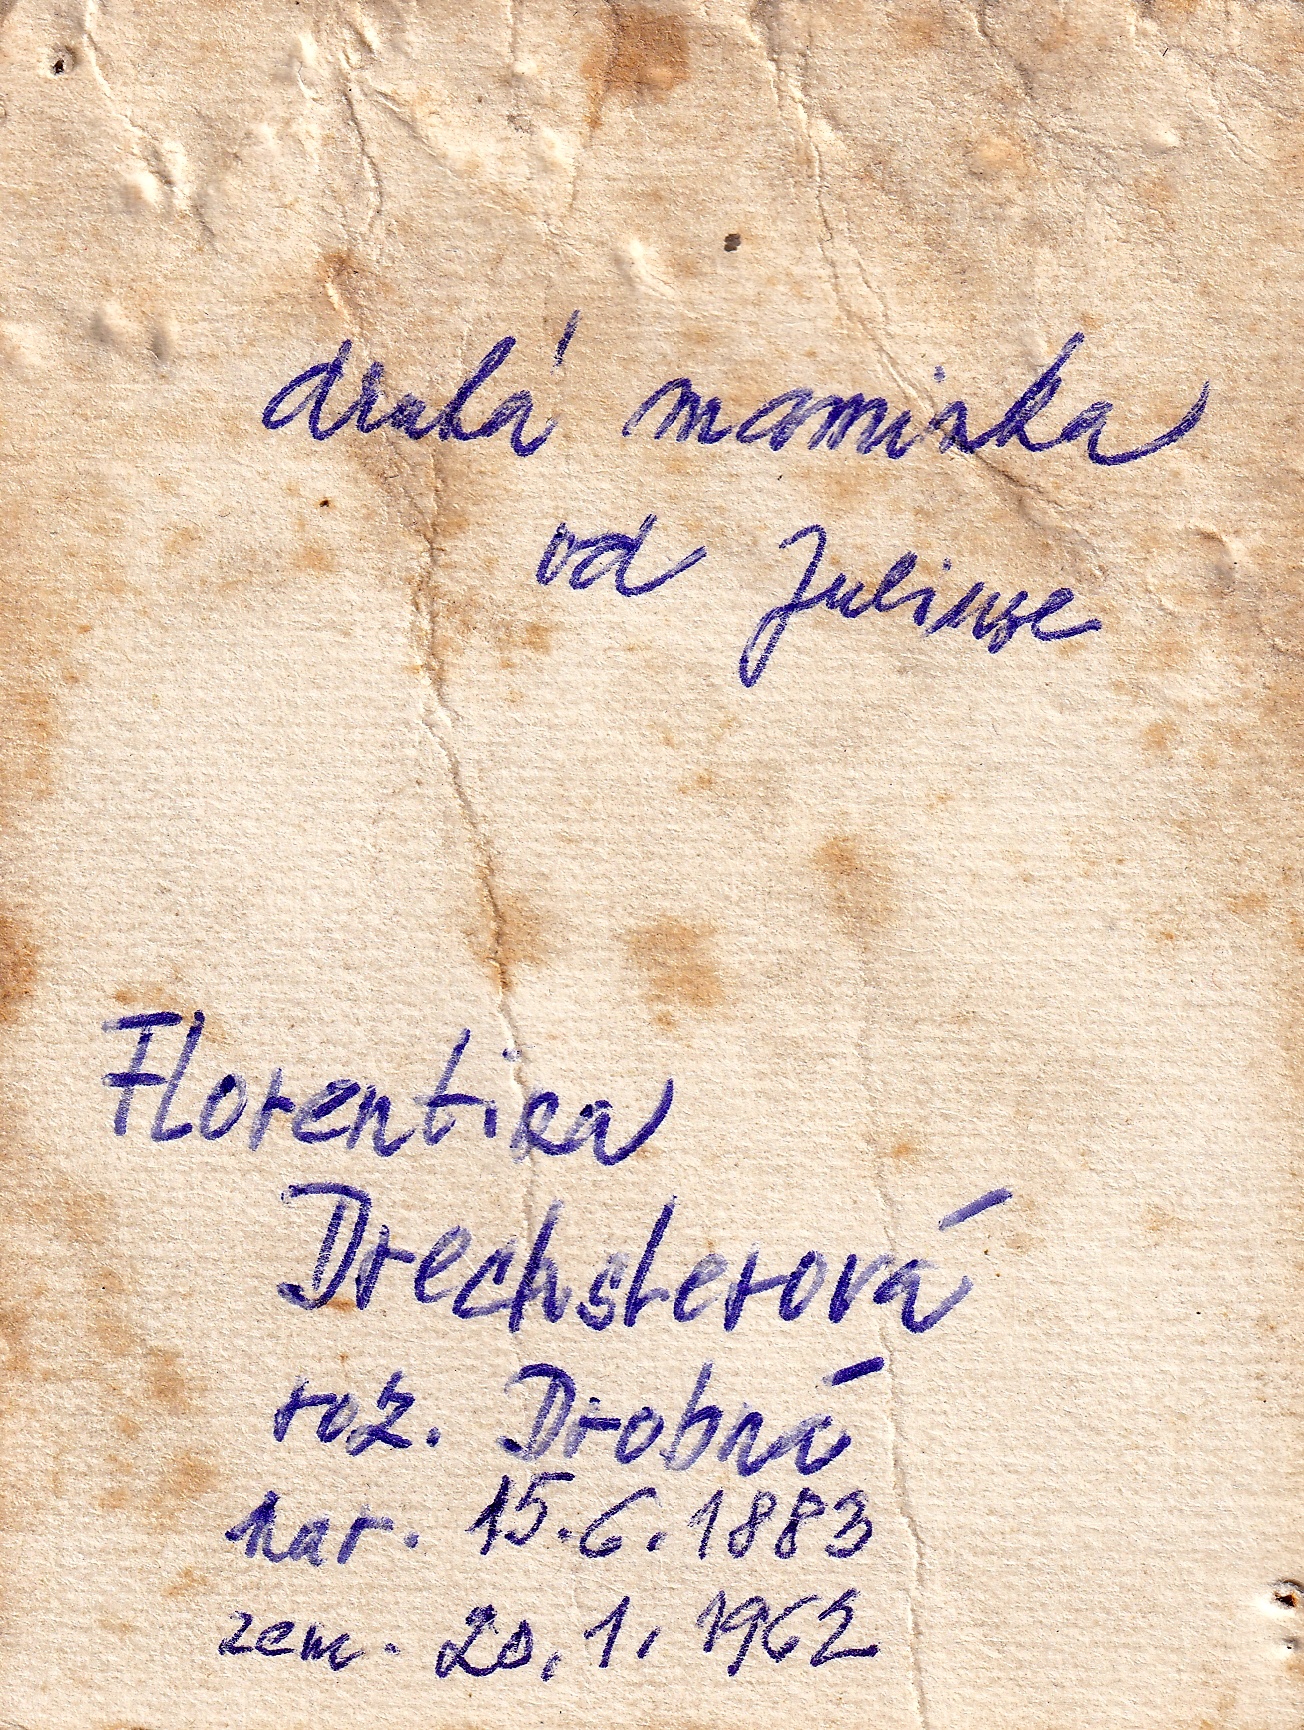 druhá maminka
od Juliuse
Florentina
Drechslerová
rož. Drobná
nar. 15.6.1883
zem. 20.1.1962